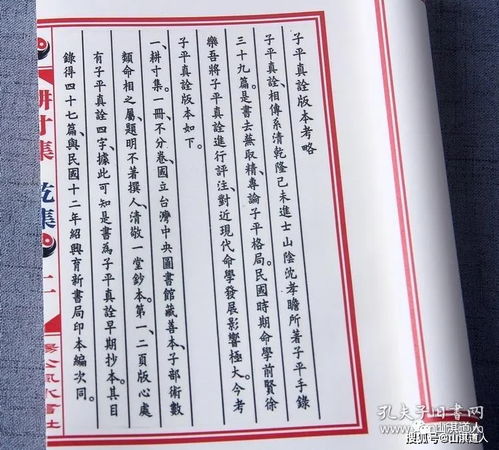 子平真詮版本考略
子平真詮、相傳系清乾隆己未進士山陰沈孝瞻所著子平手錄
三十九篇。是書去蕪取精、專論子平格局。民國時期命學前賢徐
樂吾將子平真詮進行評注、對近現代命學發展影響極大。今考
子平真詮版本如下。
一、耕寸集。一冊、不分卷、國立台灣中央圖書館藏善本、子部術數
類命相之屬、題明不著撰人、清敬一堂鈔本。第一、二頁版心處
有子平真詮四字、據此可知是書為子平真詮早期抄本。其目
錄得四十七篇、與民國十二年紹興育新書局印本編次同。
耕寸集 乾集
二
楊公風水書社
孔夫子旧书网
搜狐号@山淇道人